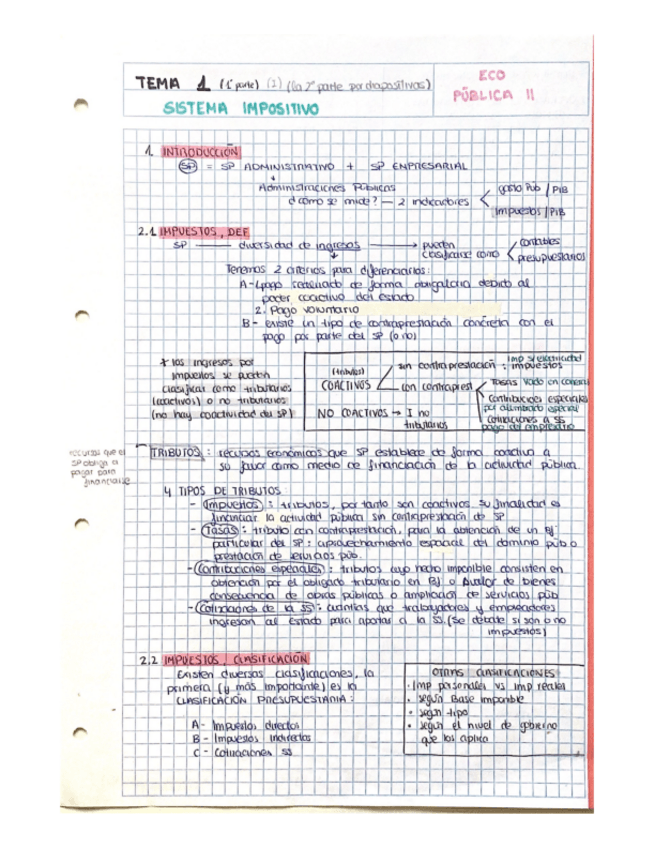 TEMA 1 (1ª parte) (2) (la 2ª parte por diapositivas)
SISTEMA IMPOSITIVO
ECO
PÚBLICA II
1. INTRODUCCIÓN
SP = SP ADMINISTRATIVO + SP EMPRESARIAL
Administraciones Públicas
¿cómo se mide? — 2 indicadores
gasto Púb / PIB
impuestos / PIB
2.1 IMPUESTOS, DEF
SP — diversidad de ingresos → pueden clasificarse como
contables
presupuestarios
Tenemos 2 criterios para diferenciarlos:
A - 1. pago realizado de forma obligatoria debido al
poder coactivo del estado
2. Pago voluntario
B - existe un tipo de contraprestación concreta con el
pago por parte del SP (o no)
* los ingresos por
impuestos se pueden
clasificar como tributarios
(coactivos) o no tributarios
(no hay coactividad del SP)
(tributos)
COACTIVOS
sin contraprestación: impuestos
Imp s/ electricidad
con contraprest
TASAS
contribuciones especiales
por alumbrado especial
cotizaciones a SS
pago del empresario
NO COACTIVOS → I no
tributarios
recursos que el
SP obliga a
pagar para
financiarse
TRIBUTOS: recursos económicos que SP establece de forma coactiva a
su favor como medio de financiación de la actividad pública.
4 TIPOS DE TRIBUTOS
- Impuestos: tributos, por tanto son coactivos su finalidad es
financiar la actividad pública sin contraprestación de SP
- Tasas: tributo con contraprestación, para la obtención de un Bº
particular del SP: aprovechamiento especial del dominio púb o
prestación de servicios púb.
- Contribuciones especiales: tributos cuyo hecho imponible consisten en
obtención por el obligado tributario en Bº o ↑valor de bienes
consecuencia de obras públicas o ampliación de servicios púb
- Cotizaciones de la SS: cuantías que trabajadores y empleadores
ingresan al estado para aportar a la SS. (Se debate si son o no
impuestos)
2.2 IMPUESTOS, CLASIFICACIÓN
Existen diversas clasificaciones, la
primera (y más importante) es la
CLASIFICACIÓN PRESUPUESTARIA:
A - Impuestos directos
B - Impuestos indirectos
C - Cotizaciones SS
OTRAS CLASIFICACIONES
· Imp personales vs imp reales
· según Base imponible
· según tipo
· según el nivel de gobierno
que los aplica